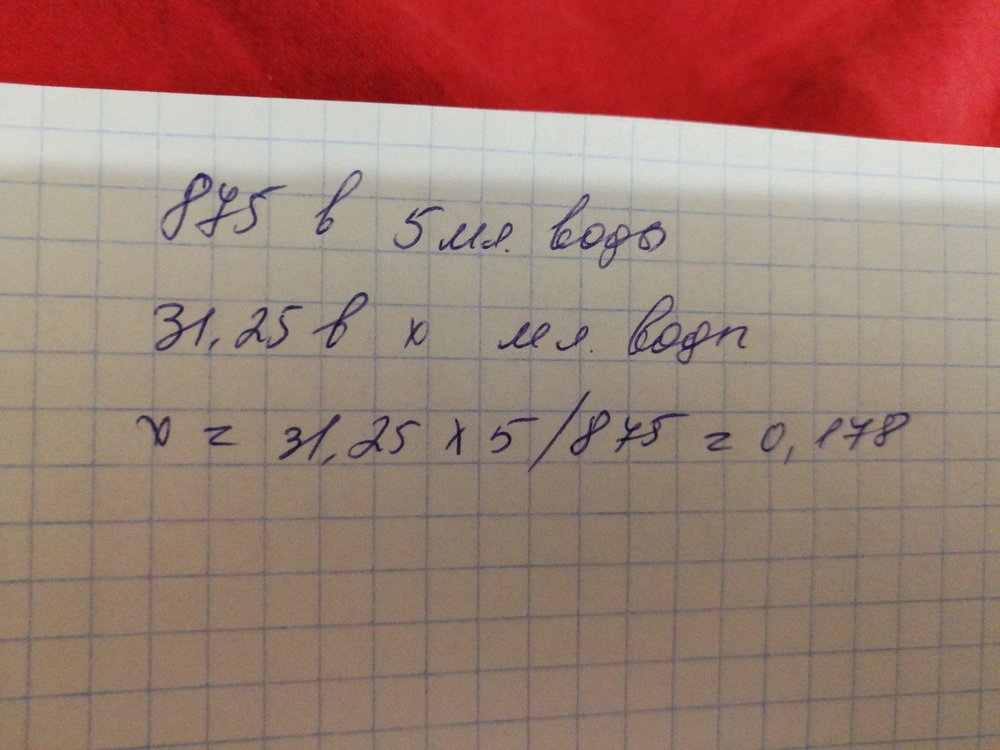 875 в 5 мл. воды
31,25 в x мл. воды
x = 31,25 x 5/875 = 0,178